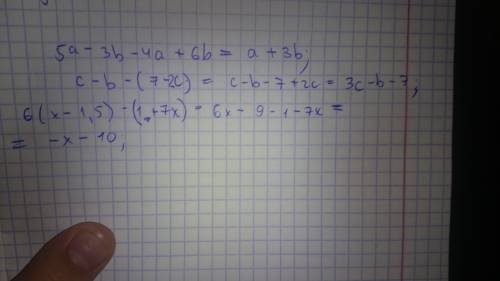 5a - 3b - 4a + 6b = a + 3b;
c - b - (7-2c) = c - b - 7 + 2c = 3c - b - 7;
6(x - 1,5) - (1 + 7x) = 6x - 9 - 1 - 7x =
= -x - 10;